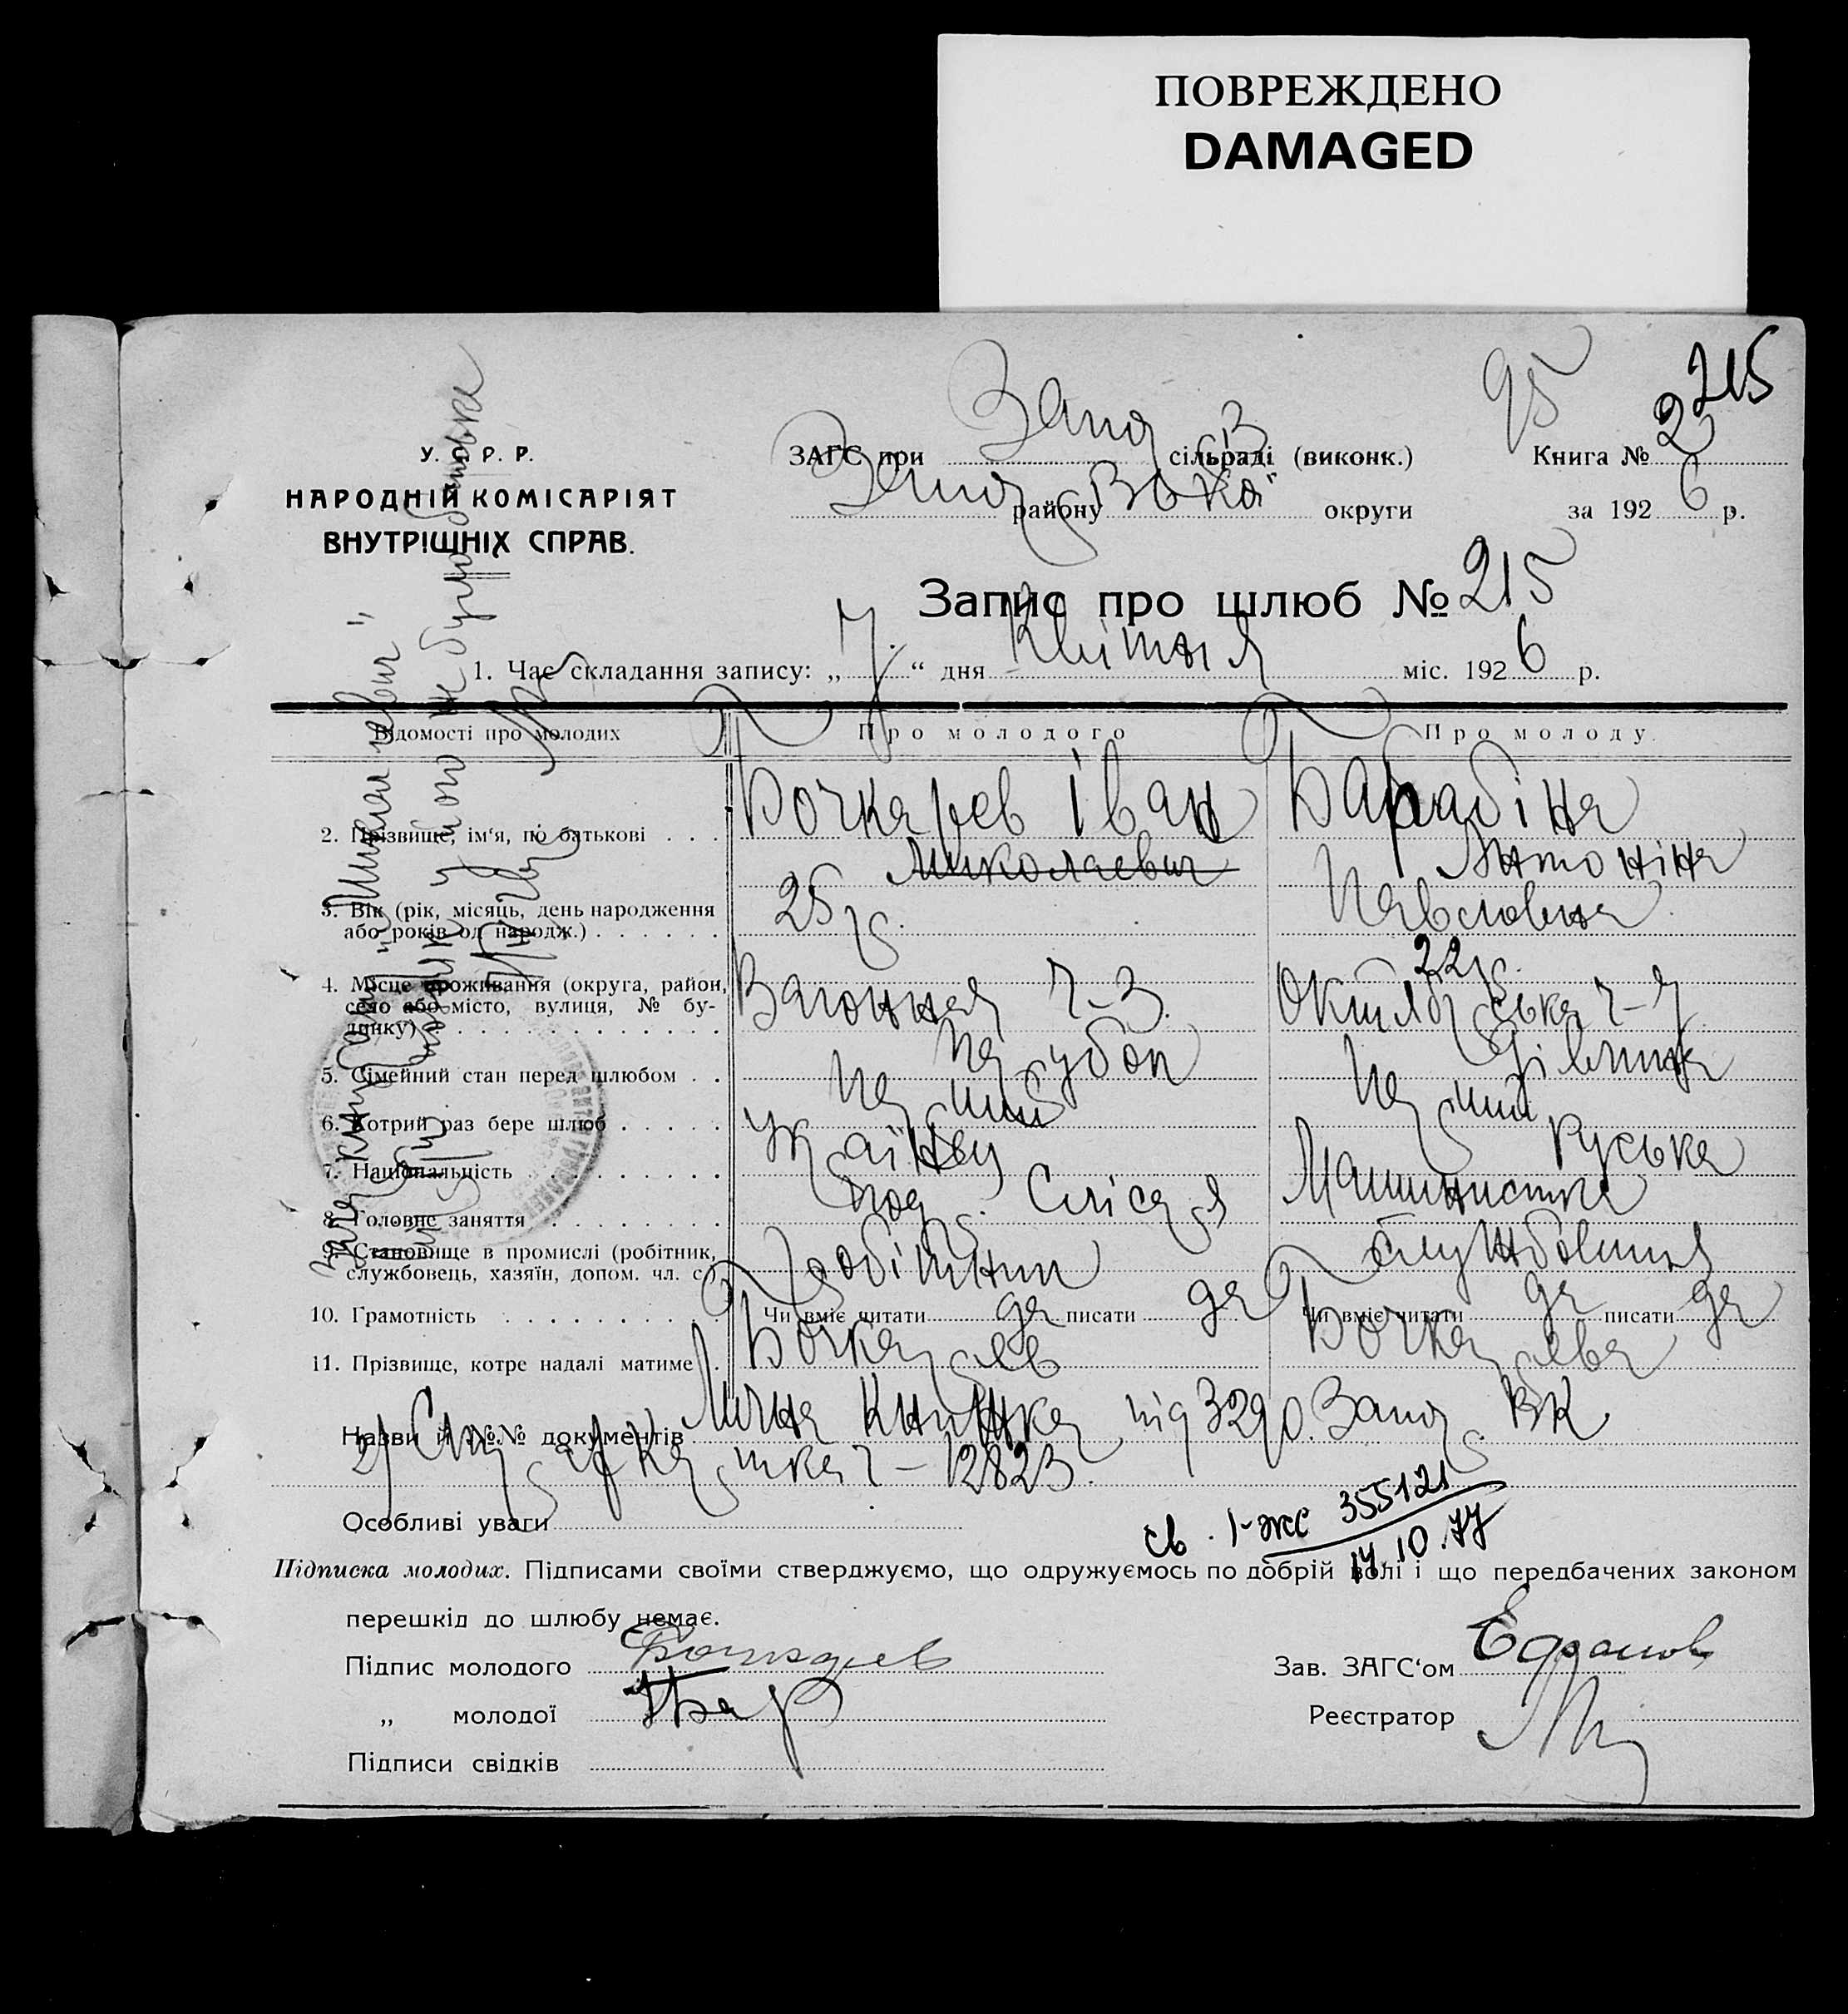 ПОВРЕЖДЕНО
DAMAGED
95
215
У. С. Р. Р.
НАРОДНІЙ КОМІСАРІЯТ
ВНУТРІШНІХ СПРАВ.
ЗАГС при Запор сільраді (виконк.) Книга № 2
Запор району округи за 1926 р.
Запис про шлюб № 215
1. Час складання запису: „7“ дня Квітня міс. 1926 р.
Відомості про молодих Про молодого Про молоду
2. Прізвище, ім'я, по батькові . . . Бочкарев Іван Барабіна
Миколаевич Антоніна
Павловна
3. Вік (рік, місяць, день народження
або років од народж.) . . . . . . 25 р. 22 р.
4. Місце проживання (округа, район,
село або місто, вулиця, № бу-
динку) . . . . . . . . . . . . Вагонная ч-3. Октябрська ч-7
5. Сімейний стан перед шлюбом . . Парубок Дівчина
6. Котрий раз бере шлюб . . . . . Перший Перший
7. Національність . . . . . . . . Українец Руська
8. Головне заняття . . . . . . . . Слісаря Машинистка
9. Становище в промислі (робітник,
службовець, хазяїн, допом. чл. с.) Робітник Службовиця
10. Грамотність . . . . . . . . . Чи вміє читати да писати да Чи вміє читати да писати да
11. Прізвище, котре надалі матиме . Бочкарев Бочкарева
Назви й №№ документів Лична Книжка під 3290. Запор. ВК
2/ картка ч-12823.
Особливі уваги
св. 1-жс 355121
14.10.77
Підписка молодих. Підписами своїми стверджуємо, що одружуємось по добрій волі і що передбачених законом
перешкід до шлюбу немає.
Підпис молодого Бочкарев Зав. ЗАГС'ом
„ молодої Бар Реєстратор
Підписи свідків